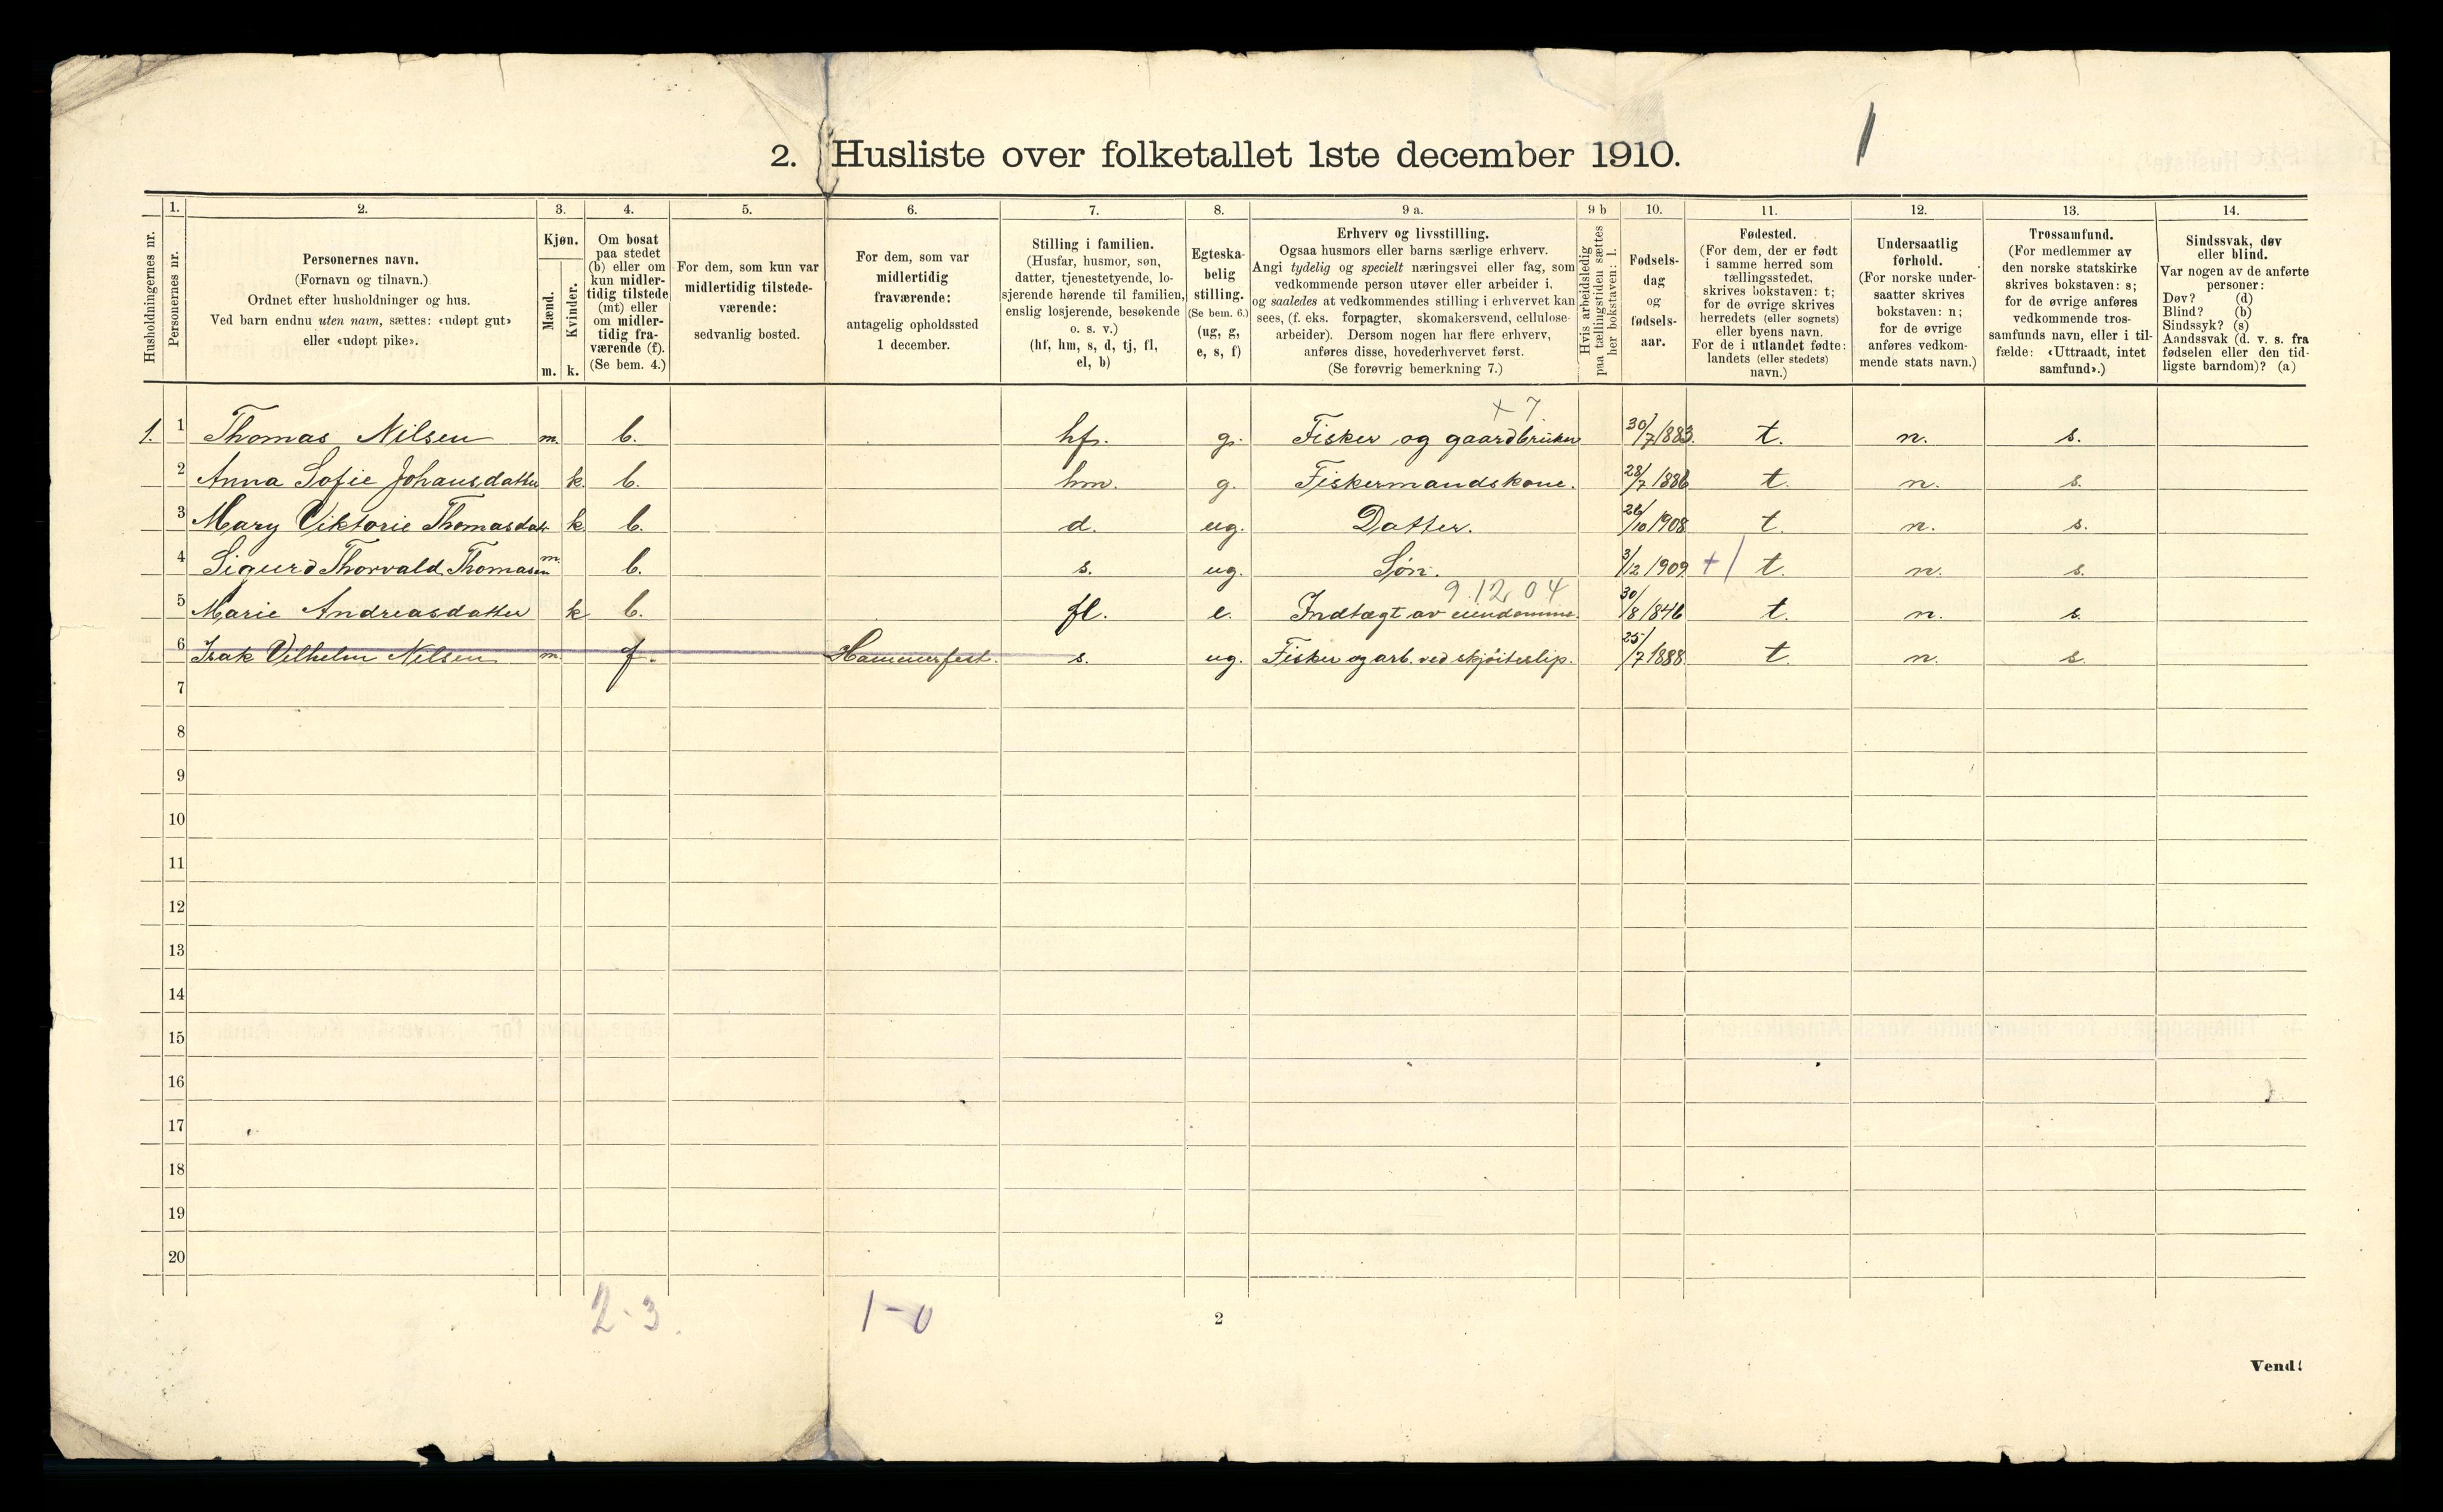 2. Husliste over folketallet 1ste december 1910.
1
Husholdningernes nr.
1.
Personernes nr.
2.
Personernes navn.
(Fornavn og tilnavn.)
Ordnet efter husholdninger og hus.
Ved barn endnu uten navn, sættes: «udøpt gut»
eller «udøpt pike».
3.
Kjøn.
Mænd.
m.
Kvinder.
k.
4.
Om bosat
paa stedet
(b) eller om
kun midler-
tidig tilstede
(mt) eller
om midler-
tidig fra-
værende (f).
(Se bem. 4.)
5.
For dem, som kun var
midlertidig tilstede-
værende:
sedvanlig bosted.
6.
For dem, som var
midlertidig
fraværende:
antagelig opholdssted
1 december.
7.
Stilling i familien.
(Husfar, husmor, søn,
datter, tjenestetyende, lo-
sjerende hørende til familien,
enslig losjerende, besøkende
o. s. v.)
(hf, hm, s, d, tj, fl,
el, b)
8.
Egteska-
belig
stilling.
(Se bem. 6.)
(ug, g,
e, s, f)
9 a.
Erhverv og livsstilling.
Ogsaa husmors eller barns særlige erhverv.
Angi tydelig og specielt næringsvei eller fag, som
vedkommende person utøver eller arbeider i,
og saaledes at vedkommendes stilling i erhvervet kan
sees, (f. eks. forpagter, skomakersvend, cellulose-
arbeider). Dersom nogen har flere erhverv,
anføres disse, hovederhvervet først.
(Se forøvrig bemerkning 7.)
9 b
Hvis arbeidsledig
paa tællingstiden sættes
her bokstaven: l.
10.
Fødsels-
dag
og
fødsels-
aar.
11.
Fødested.
(For dem, der er født
i samme herred som
tællingsstedet,
skrives bokstaven: t;
for de øvrige skrives
herredets (eller sognets)
eller byens navn.
For de i utlandet fødte:
landets (eller stedets)
navn.)
12.
Undersaatlig
forhold.
(For norske under-
saatter skrives
bokstaven: n;
for de øvrige
anføres vedkom-
mende stats navn.)
13.
Trossamfund.
(For medlemmer av
den norske statskirke
skrives bokstaven: s;
for de øvrige anføres
vedkommende tros-
samfunds navn, eller i til-
fælde: «Uttraadt, intet
samfund».)
14.
Sindssvak, døv
eller blind.
Var nogen av de anførte
personer:
Døv? (d)
Blind? (b)
Sindssyk? (s)
Aandssvak (d. v. s. fra
fødselen eller den tid-
ligste barndom)? (a)
+ 7.
1. 1 Thomas Nilsen m. b. hf. g. Fisker og gaardbruker 30/7 1883. t. n. s.
2 Anna Sofie Johansdatter k. b. hm. g. Fiskermandskone. 28/7 1886 t. n. s.
3 Mary Viktorie Thomasdatr. k. b. d. ug. Datter. 26/10 1908 t. n. s.
4 Sigurd Thorvald Thomasen m. b. s. ug. Søn. 3/12 1909 +1 t. n. s.
9.12.04
5 Marie Andreasdatter k b. fl. e. Indtægt av eiendomme. 30/8 1846 t. n. s.
6 Isak Vilhelm Nilsen m. f. Hammerfest. s. ug. Fisker og arb. ved skjøiteslip. 25/7 1888. t. n. s.
7
8
9
10
11
12
13
14
15
16
17
18
19
20
2-3. 1-0
2
Vend!